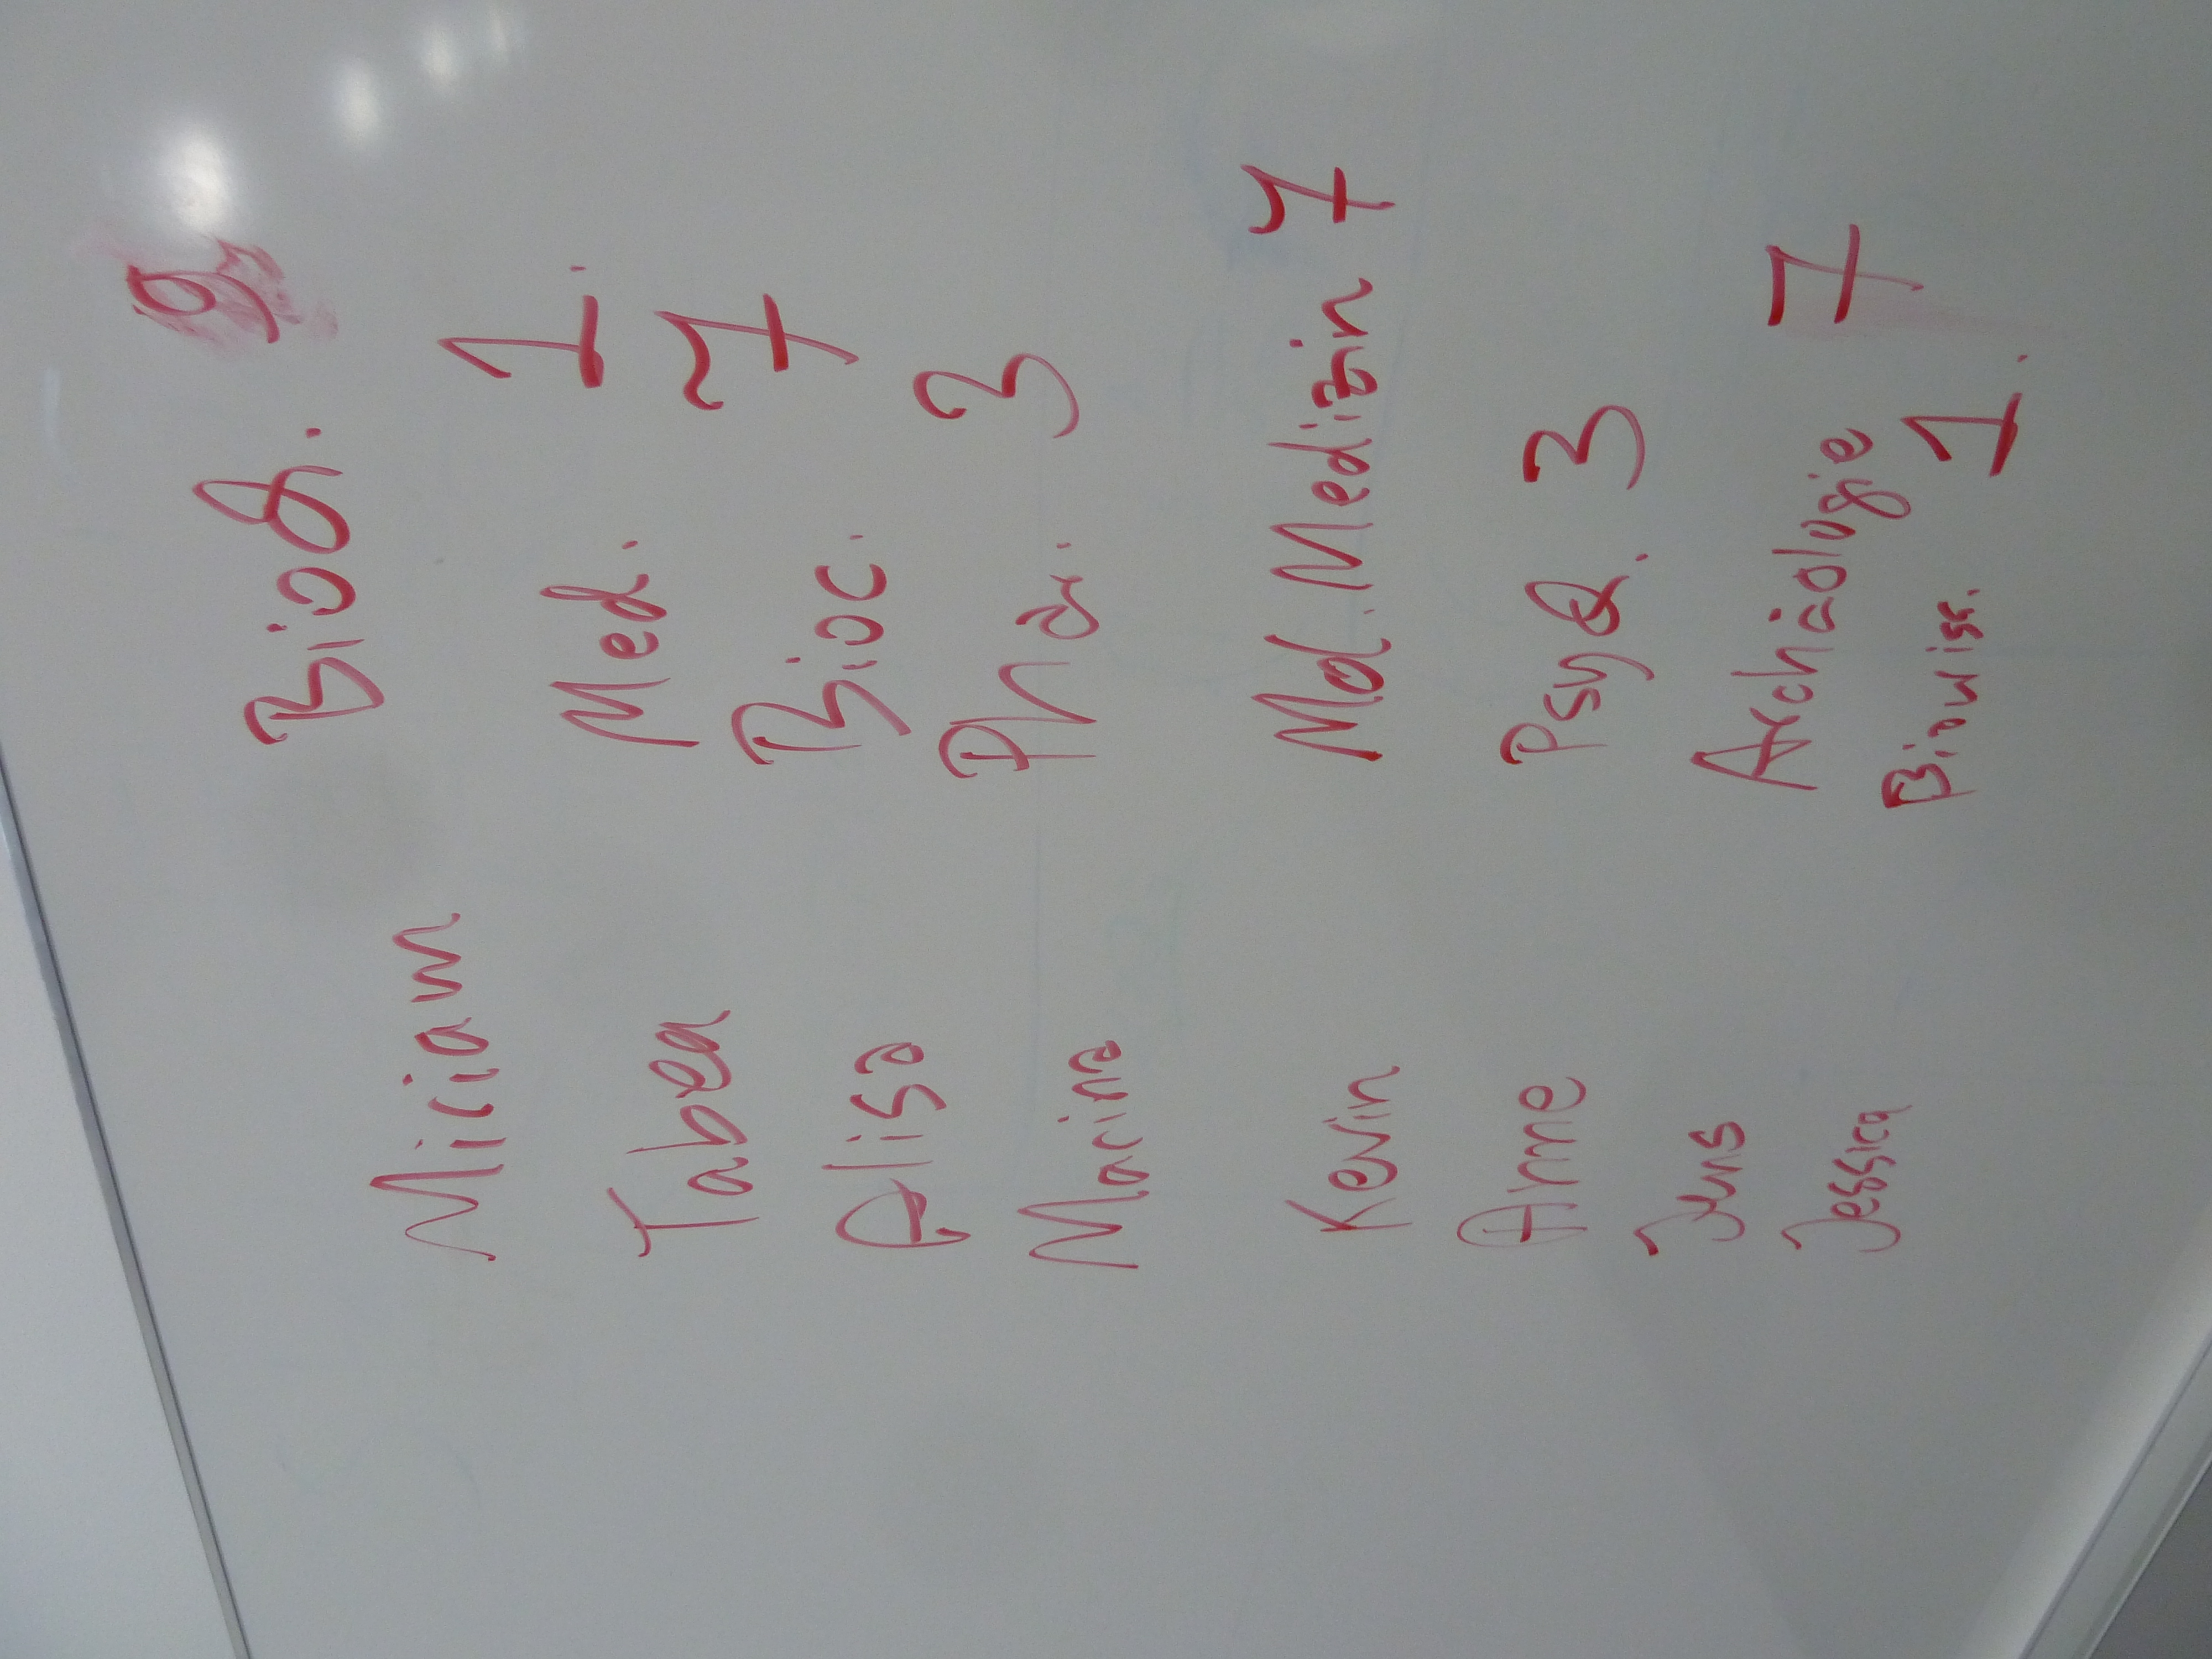 Miriam Bioch. 9
Tabea Med. 1.
Alisa Bioc. 7
Marina Phar. 3
Kevin Mol. Medizin 7
Arne Psych. 3
Jens Archäologie 7
Jessica Biowiss. 1.